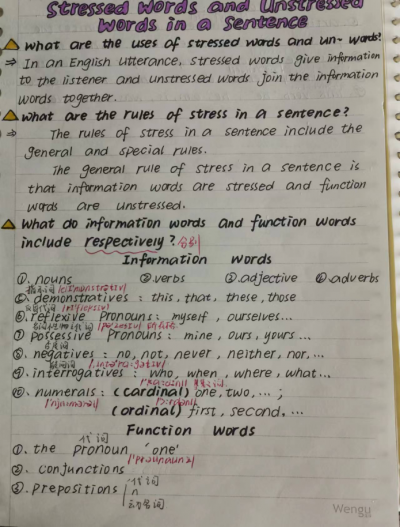 Stressed Words and Unstressed
Words in a Sentence
What are the uses of stressed words and un- words?
⇒ In an English utterance, stressed words give information
to the listener and unstressed words join the information
words together.
What are the rules of stress in a sentence?
⇒ The rules of stress in a sentence include the
general and special rules.
The general rule of stress in a sentence is
that information words are stressed and function
words are unstressed.
What do information words and function words
include respectively? 分别
Information Words
①. nouns ②.verbs ③.adjective ④.adverbs
指示词
⑤. demonstratives : this, that, these, those
⑥.reflexive Pronouns: myself, ourselves...
⑦. possessive Pronouns: mine, ours, yours ...
⑧. negatives: no, not, never, neither, nor, ...
疑问词
⑨. interrogatives: who, when, where, what...
⑩. numerals: (cardinal) one, two, ... ;
(ordinal) first, second, ...
Function Words
代词
①. the pronoun 'one'
②. conjunctions
③. prepositions
代词
n
动名词
Wengu